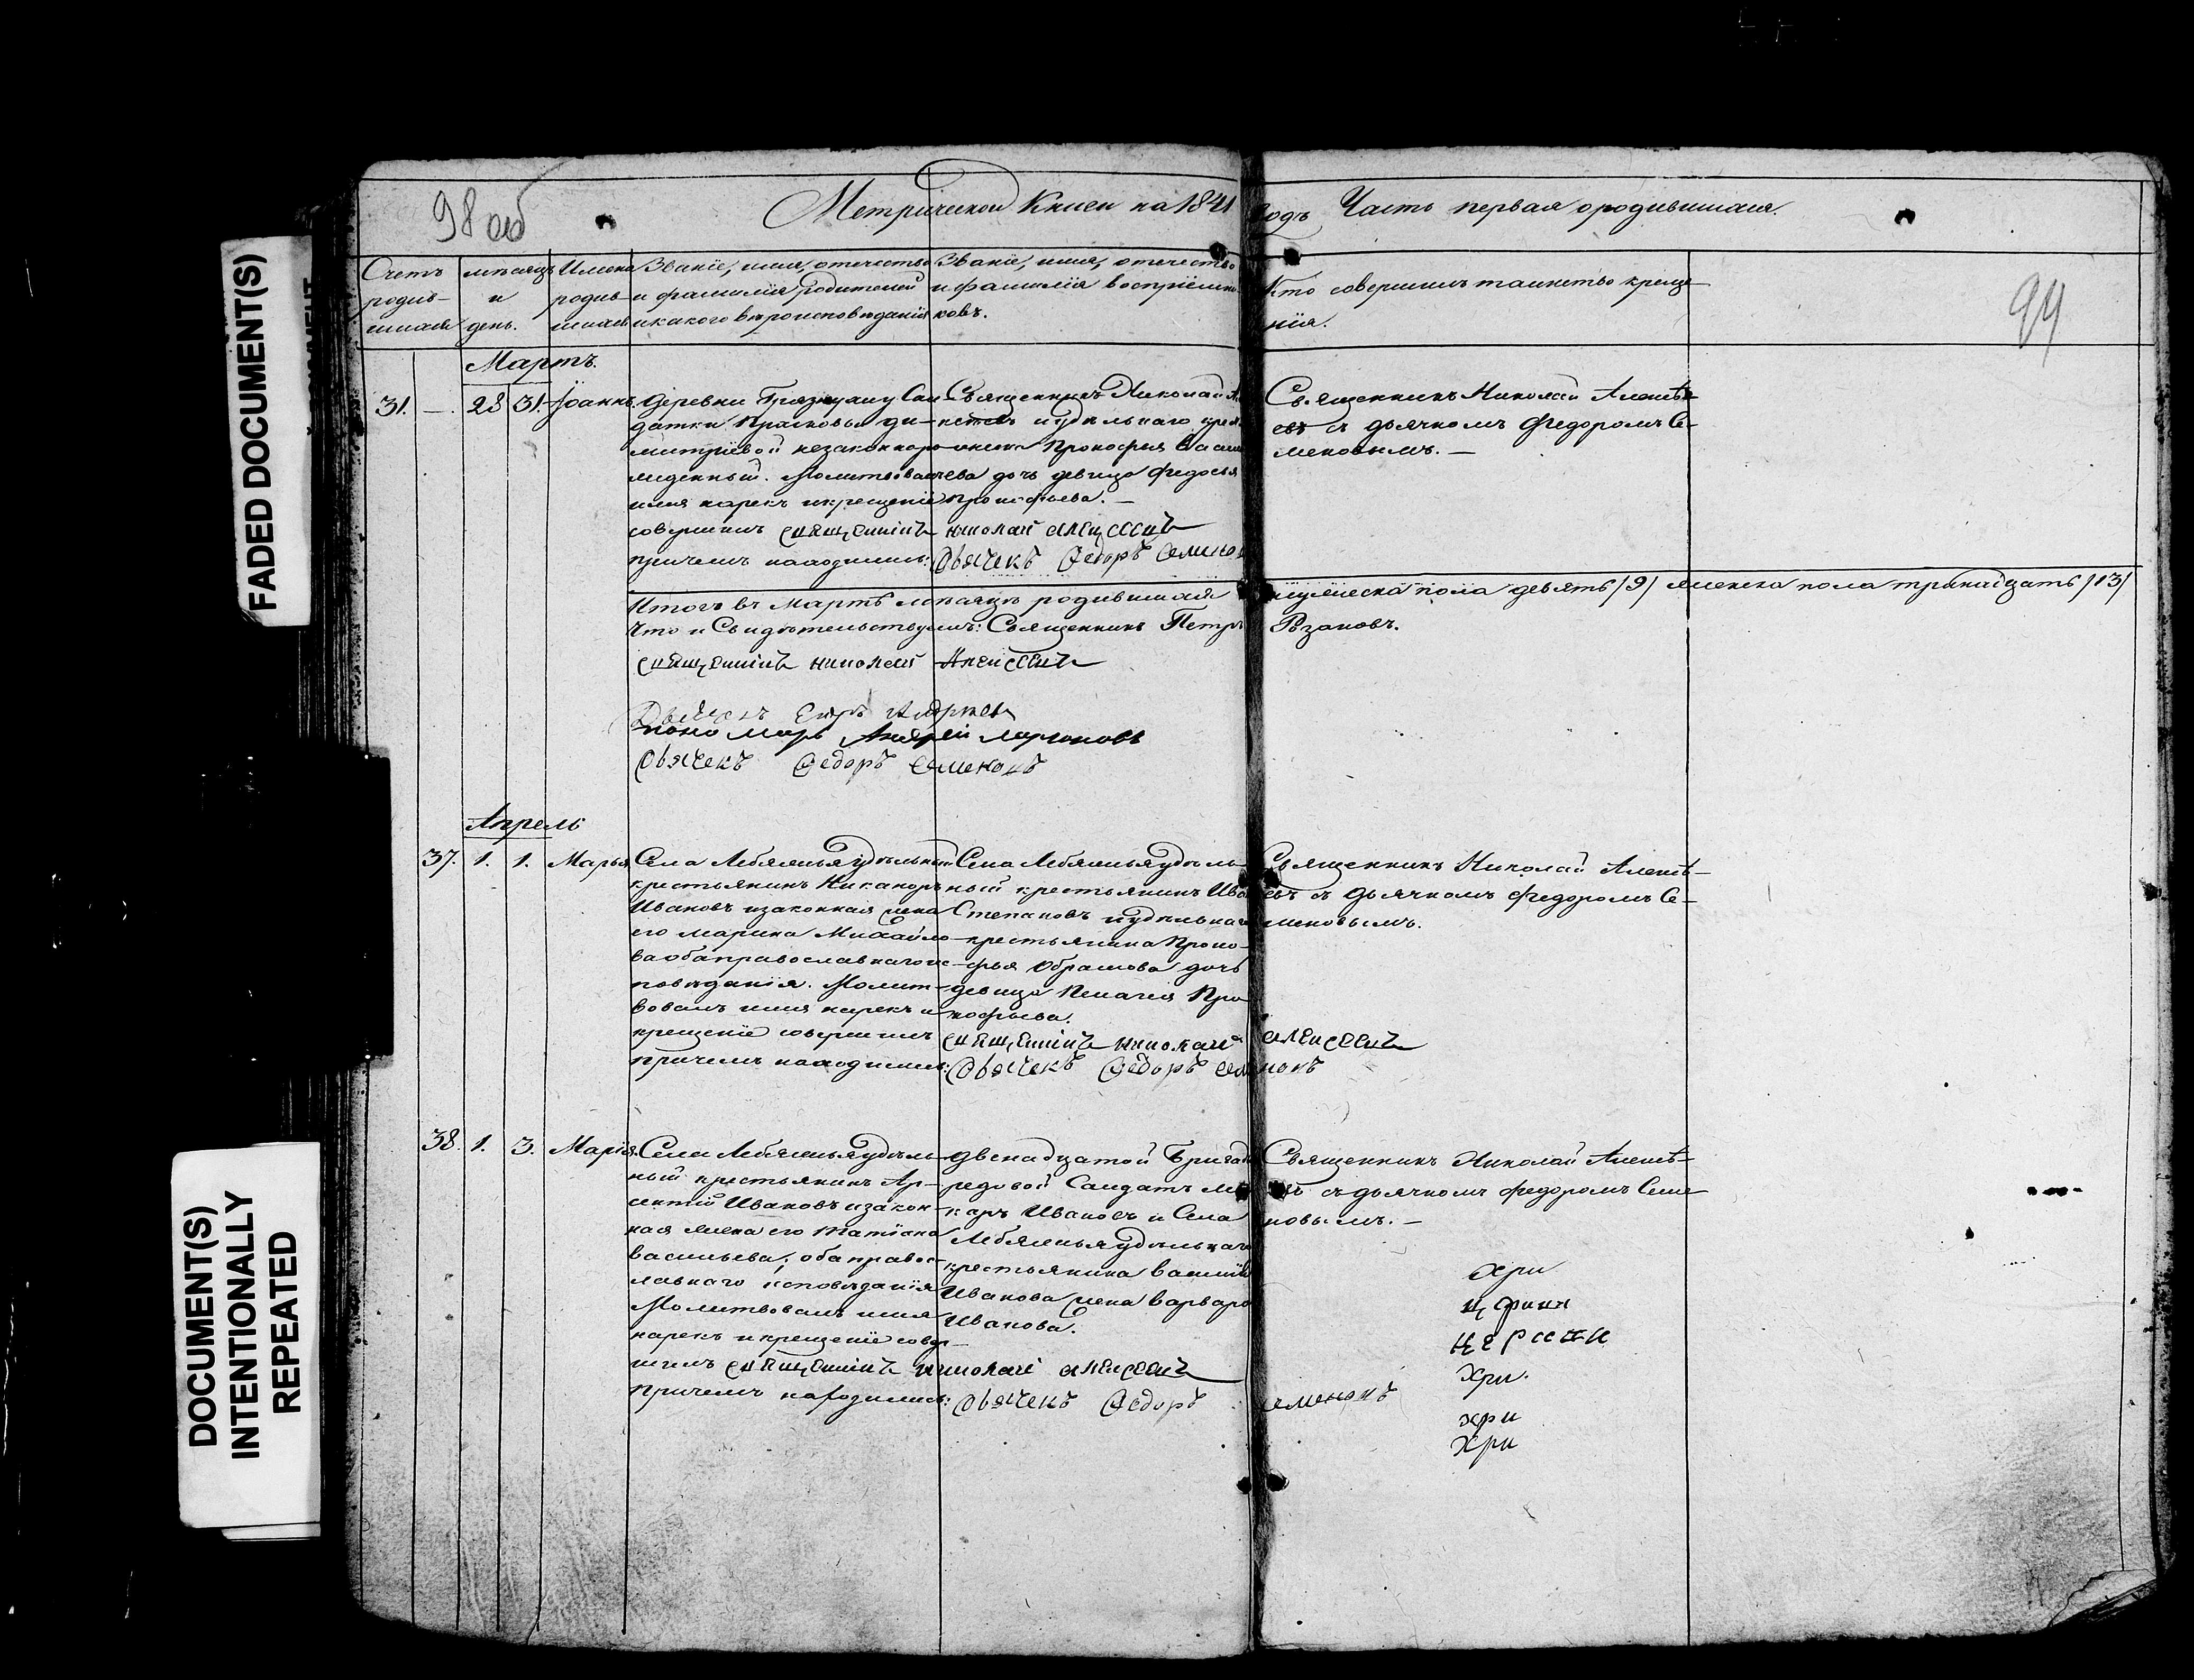 98 об
Метрической Книги на 1841
годъ Часть первая о родившихся.
99
Счетъ родив-шихся
мѣсяцъ и день.
Имена родив-шихся
Званіе, имя, отечество
и фамилія родителей
и какого вѣроисповѣданія
Званіе, имя, отечество
и фамилія воспріемни-
ковъ.
Кто совершилъ таинство креще-
нія.
Мартъ.
31. —. 28 31. Іоаннъ.
деревни Сол-
датки Прасковьи Ди-
митріевой незаконноро-
жденный. Молитвовалъ
имя нарекъ и крещеніе
совершилъ священникъ Николай Алексеевъ
причемъ находились: Дьячекъ Ѳедоръ Семенов
Священникъ Николай
и удѣльнаго крес
Прокофья Васи
ева дочь девица Федосья
Прокофьева. —
Священникъ Николай Алексѣ-
евъ съ дьячкомъ Федоромъ Се-
меновымъ. —
Итогъ въ Мартѣ мѣсяцѣ родившихся мужеска пола девять /9/ женска пола тринадцать /13/
Что и Свидѣтельствуемъ: Священникъ Петръ Рѣзановъ.
священникъ николай Алексеевъ
Дьячекъ Егоръ
пономарь Андрей Ларионовъ
Дьячекъ Ѳедоръ Семеновъ
Апрель
37. 1. 1. Марья
Села Лебяжья удѣльный
крестьянинъ Никаноръ
Ивановъ и законная жена
его Марина Михайло-
ва оба православнаго ис-
повѣданія. Молит-
вовалъ имя нарекъ и
крещеніе совершилъ
причемъ находились:
Села Лебяжья удѣль-
ный крестьянинъ Ива
Степановъ и удѣльнаго
крестьянина Проко-
фья Абрамова дочь
девица Пелагея Про-
кофьева.
священникъ николай алексеевъ
Дьячекъ Ѳедоръ Семеновъ
Священникъ Николай Алексѣ-
евъ съ дьячкомъ Федоромъ Се-
меновымъ.
38. 1. 3. Марія.
Села Лебяжья удѣль-
ный крестьянинъ Ар-
сентій Ивановъ и закон-
ная жена его Татіана
Васильева; оба правос-
лавнаго исповѣданія
Молитвовалъ имя
нарекъ и крещеніе совер-
шилъ священникъ николай алексеевъ
Причемъ находились: Дьячекъ Ѳедоръ Семеновъ
двенадцатой Бригады
редовой Салдатъ Ма
каръ Ивановъ и Села
Лебяжья удѣльнаго
крестьянина Василія
Иванова жена Варвара
Иванова.
Священникъ Николай Алексѣ-
евъ съ дьячкомъ Федоромъ Семе
новымъ. —
Хри
Хри.
хри
Хри
FADED DOCUMENT(S)
DOCUMENT(S)
INTENTIONALLY
REPEATED